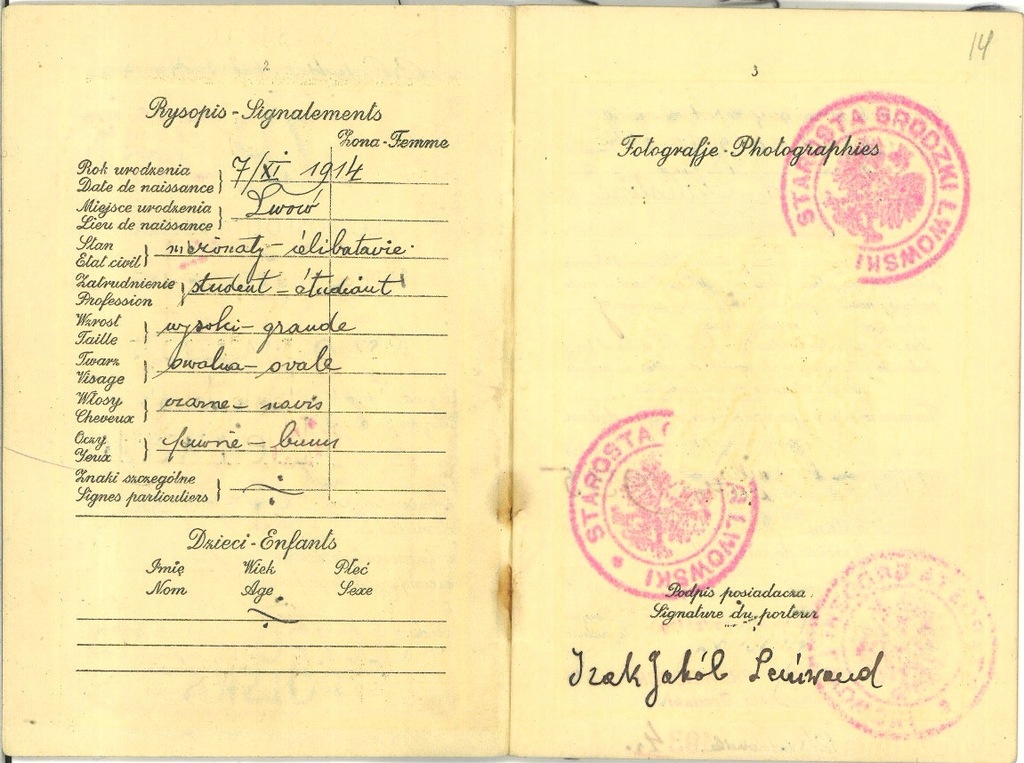 2
Rysopis - Signalements
Żona - Femme
Rok urodzenia
Date de naissance } 7/XI 1914
Miejsce urodzenia
Lieu de naissance } Lwów
Stan
Etat civil } nieżonaty - célibataire
Zatrudnienie
Profession } student - étudiant
Wzrost
Taille } wysoki - grande
Twarz
Visage } owalna - ovale
Włosy
Cheveux } czarne - noirs
Oczy
Yeux } piwne - bruns
Znaki szczególne
Signes particuliers }
Dzieci - Enfants
Imię Wiek Płeć
Nom Age Sexe
14
3
Fotografje - Photographies
STAROSTA GRODZKI LWOWSKI
STAROSTA G
KI LWOWSKI
Podpis posiadacza
Signature du porteur
Izak Jakób